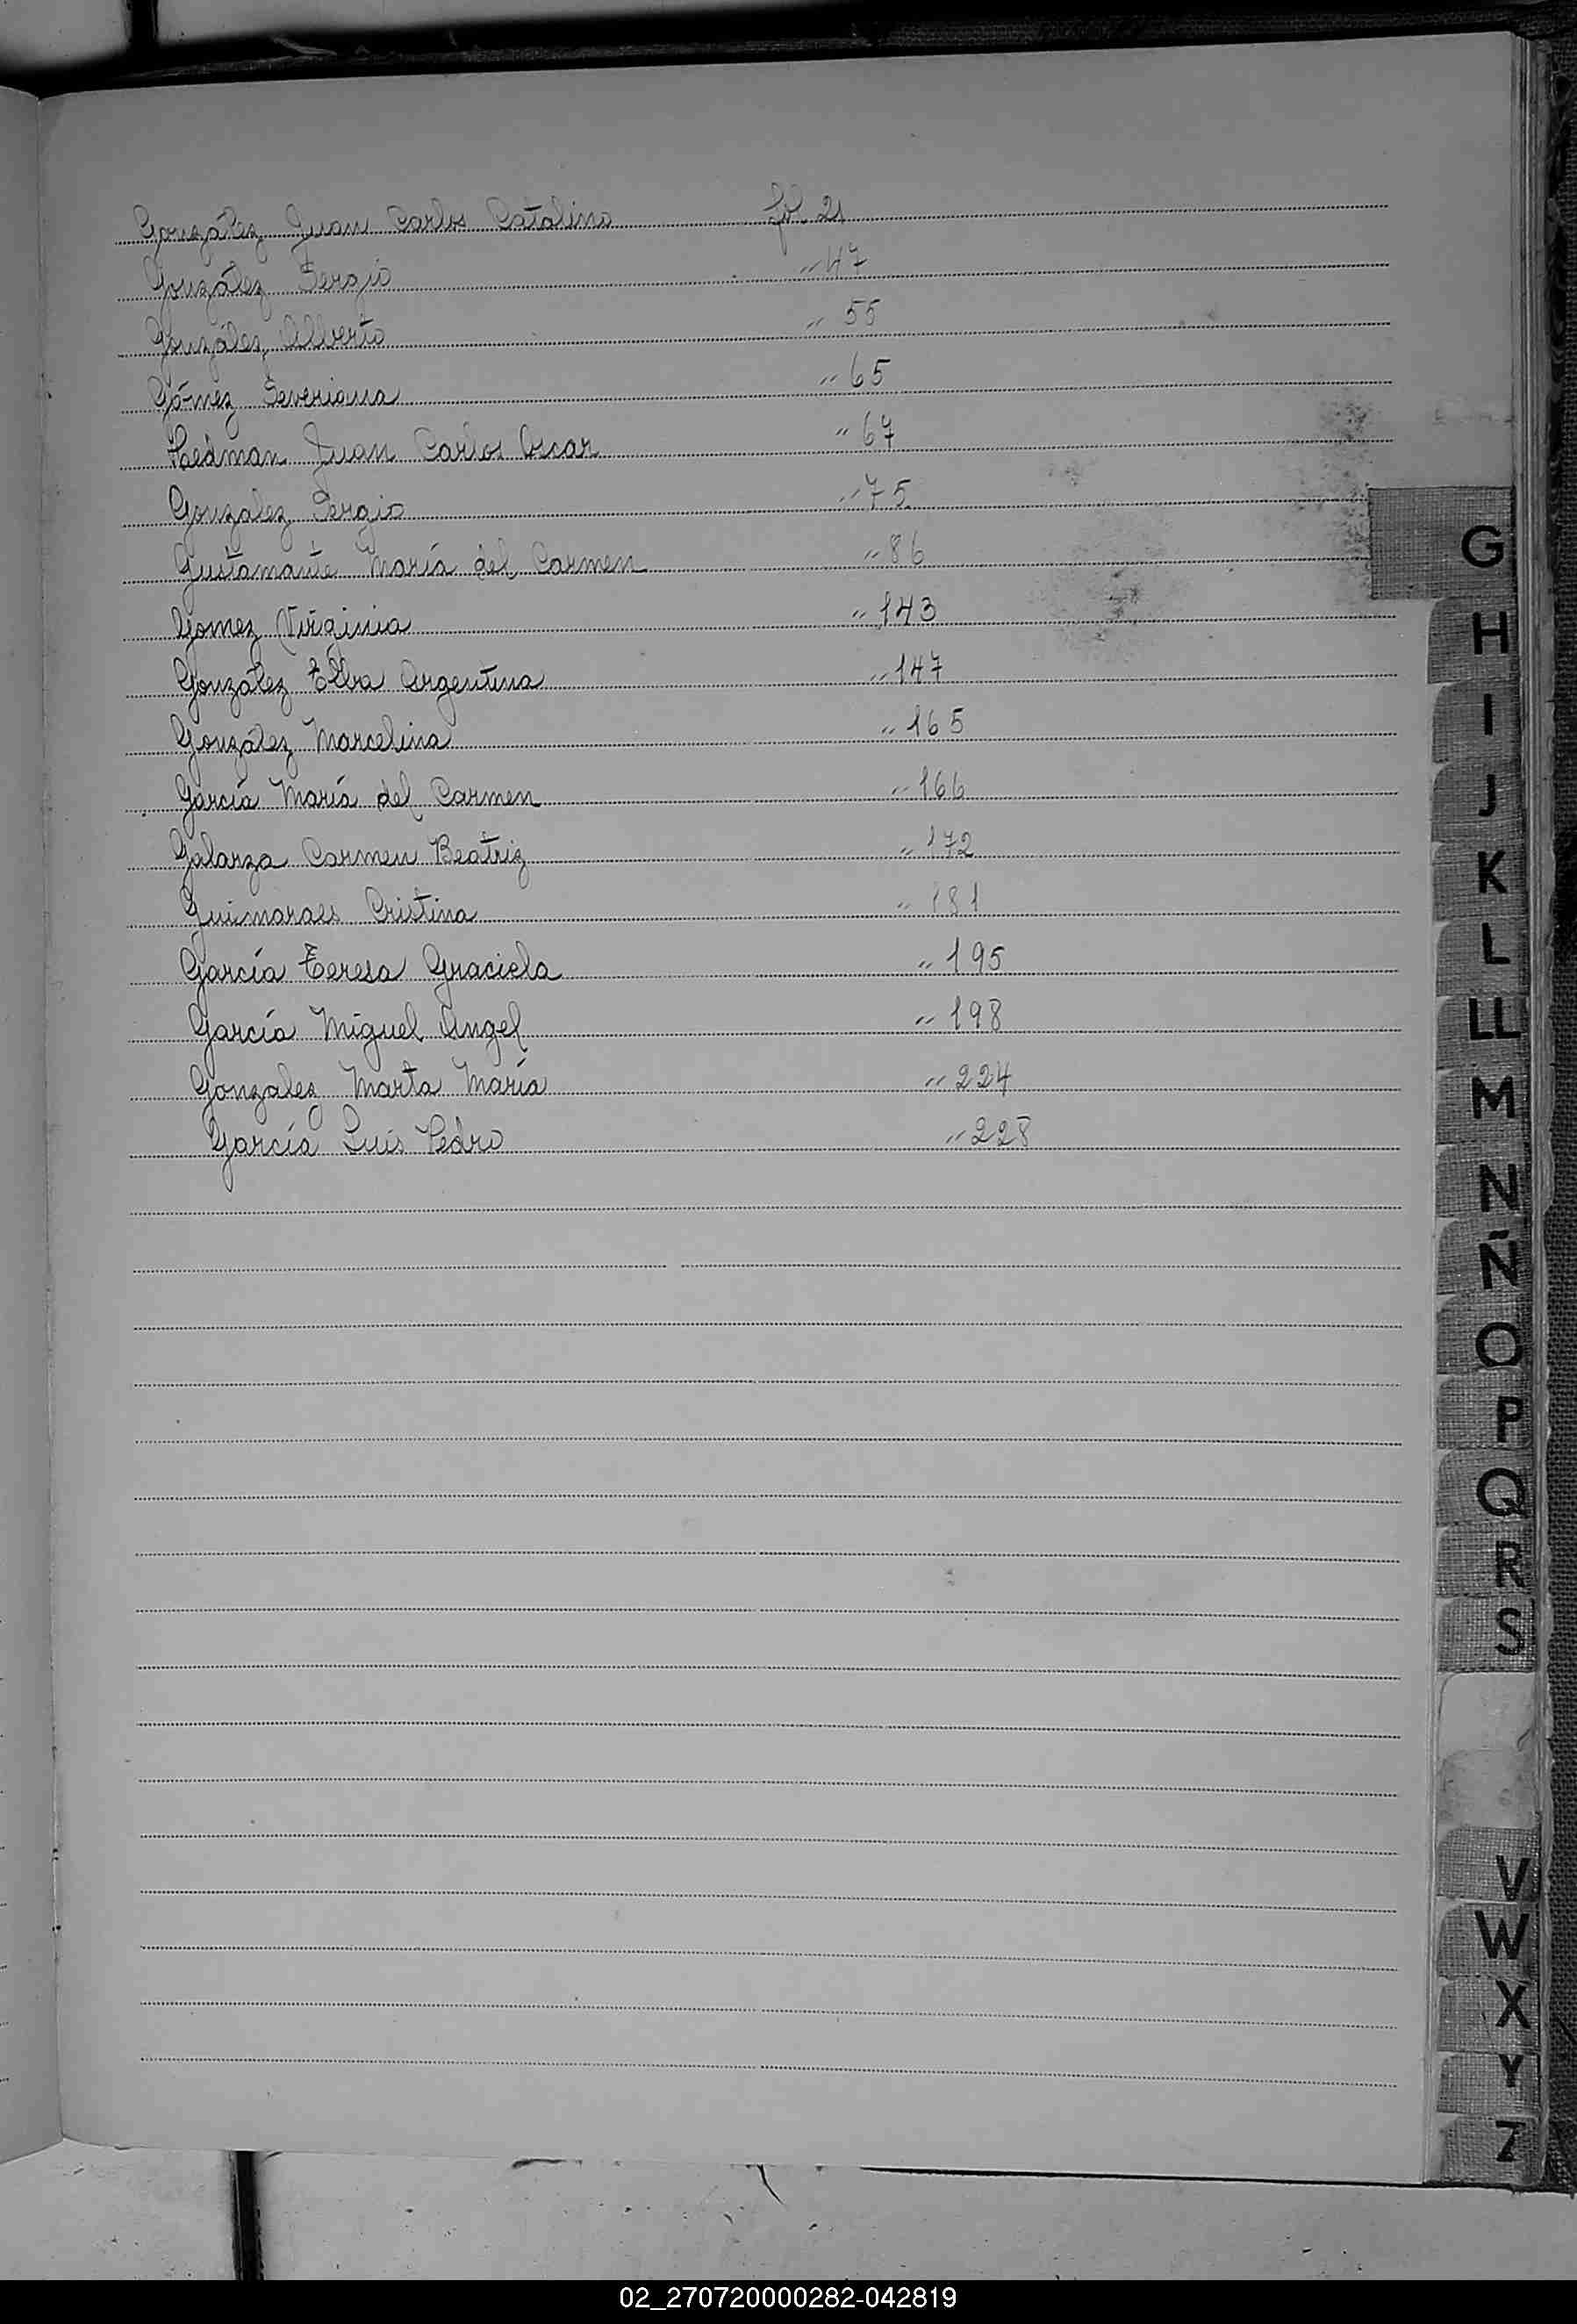 González Juan Carlos Catalino fol 21
González Sergio " 47
González Alberto " 55
Gómez Severiana " 65
Juan Carlos Oscar " 67
Gonzalez Sergio " 75
Gustamante María del Carmen " 86
Gomez Virginia " 143
González Elba Argentina " 147
González Marcelina " 165
García María del Carmen " 166
Galarza Carmen Beatriz " 172
Guimaraes Cristina " 181
García Teresa Graciela " 195
García Miguel Angel " 198
Gonzalez Marta María " 224
García Luis Pedro " 228
G
H
I
J
K
L
LL
M
N
Ñ
O
P
Q
R
S
V
W
X
Y
Z
02_270720000282-042819